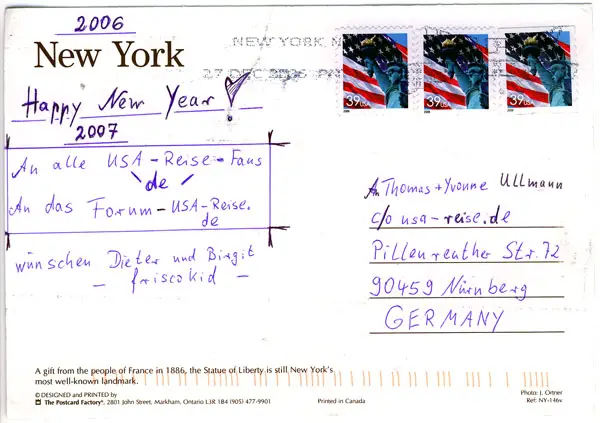 2006
New York
NEW YORK N
27 DEC 2006 PM
Happy New Year
2007
An alle USA-Reise-Fans
de
An das Forum-USA-Reise.
de
wünschen Dieter und Birgit
- friscokid -
39 USA
39 USA
39 USA
An Thomas + Yvonne Ullmann
c/o usa-reise.de
Pillenreuther Str. 72
90459 Nürnberg
GERMANY
A gift from the people of France in 1886, the Statue of Liberty is still New York's
most well-known landmark.
© DESIGNED and PRINTED by
The Postcard Factory®, 2801 John Street, Markham, Ontario L3R 1B4 (905) 477-9901
Printed in Canada
Photo: J. Ortner
Ref: NY-146v